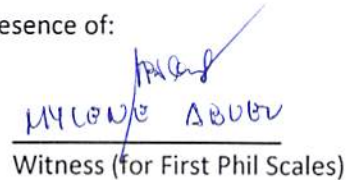 esence of:
MYLENE ABUEV
Witness (for First Phil Scales)